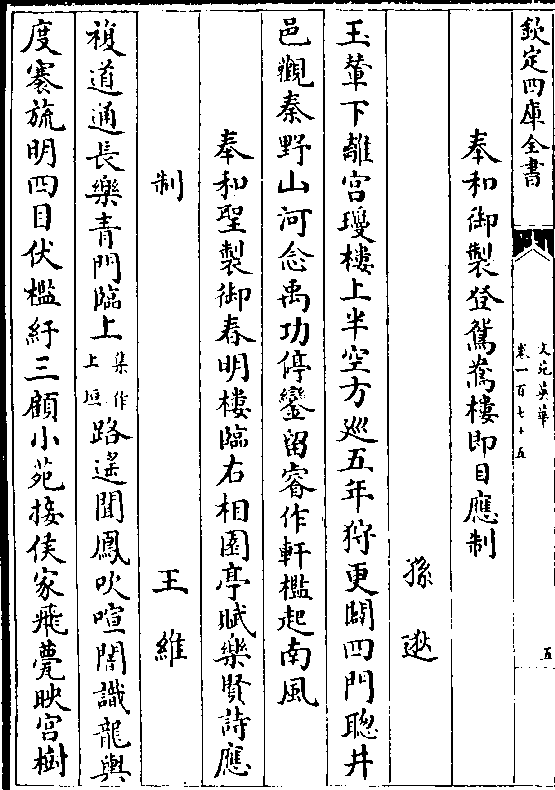 欽定四庫全書
文苑英華
卷一百七十五
五
奉和御製登鴛鴦樓即目應制
孫逖
玉輦下離宮瓊樓上半空方巡五年狩更闢四門聰井
邑觀秦野山河念禹功停鑾留睿作軒檻起南風
奉和聖製御春明樓臨右相園亭賦樂賢詩應
制
王維
複道通長樂青門臨上集作上𢌞路遙聞鳳吹喧闇識龍輿
度褰旒明四目伏檻紆三顧小苑接侯家飛甍映宮樹